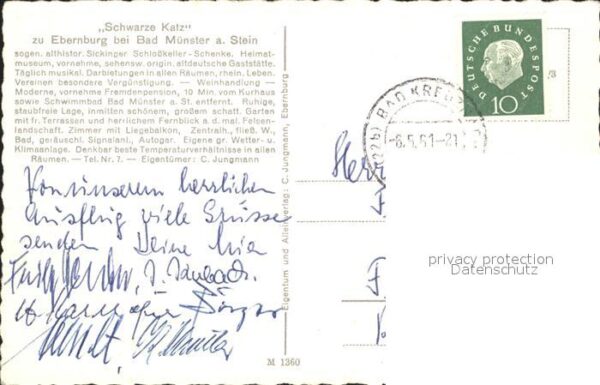 „Schwarze Katz"
zu Ebernburg bei Bad Münster a. Stein
sogen. althistor. Sickinger Schloßkeller - Schenke. Heimat-
museum, vornehme, sehensw. origin. altdeutsche Gaststätte.
Täglich musikal. Darbietungen in allen Räumen, rhein. Leben.
Vereinen besondere Vergünstigung. — Weinhandlung —
Moderne, vornehme Fremdenpension, 10 Min. vom Kurhaus
sowie Schwimmbad Bad Münster a. St. entfernt. Ruhige,
staubfreie Lage, inmitten schönem, großem schatt. Garten
mit fr. Terrassen und herrlichem Fernblick a. d. mal. Felsen-
landschaft. Zimmer mit Liegebalkon, Zentralh., fließ. W.,
Bad, geräuschl. Signalanl., Autogar. Eigene gr. Wetter- u.
Klimaanlage. Denkbar beste Temperaturverhältnisse in allen
Räumen. — Tel. Nr. 7. — Eigentümer: C. Jungmann
Von unserem herrlichen
Ausflug viele Grüsse
senden Deine
M 1360
Eigentum und Alleinverlag: C. Jungmann, Ebernburg
DEUTSCHE BUNDESPOST
10
(22b) BAD KREUZ
-8.5.61-21
Herr
privacy protection
Datenschutz